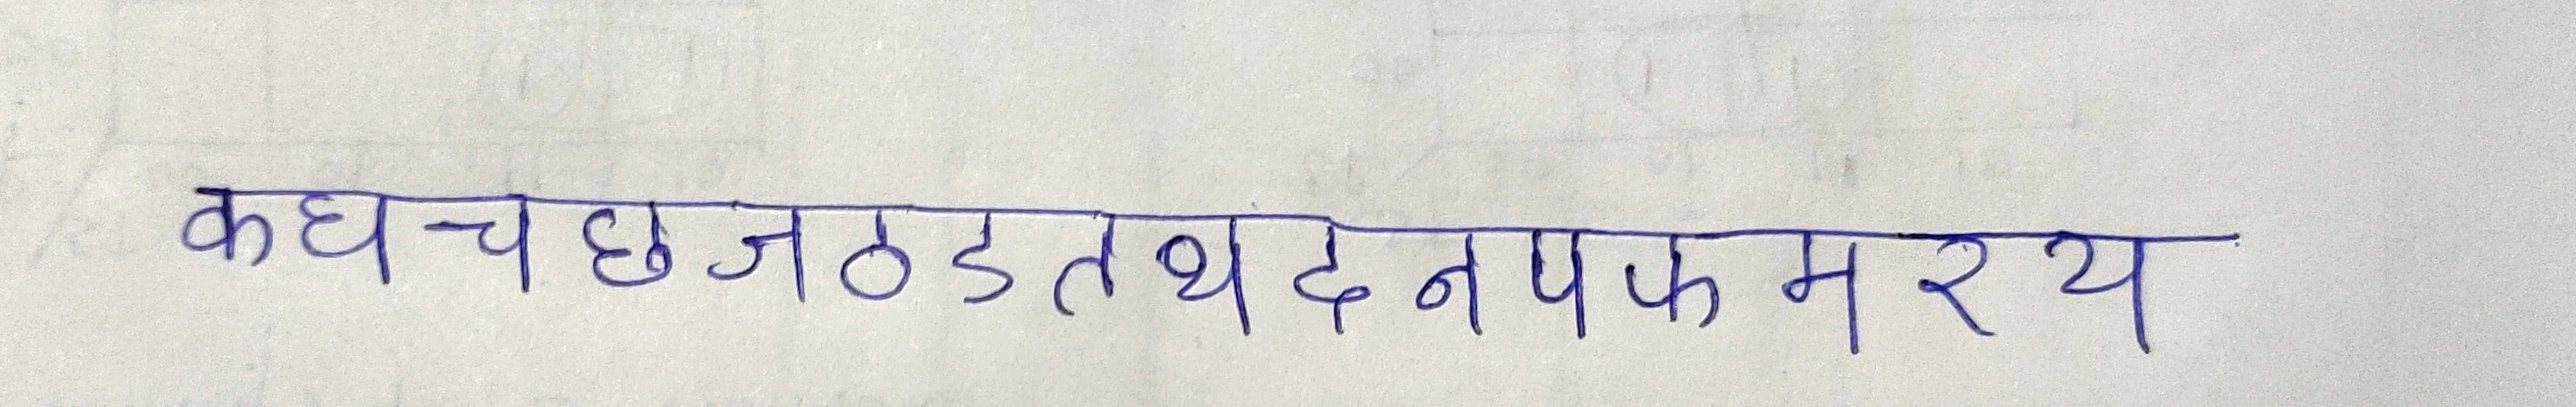 कघचछजठडतथदनपफमरय